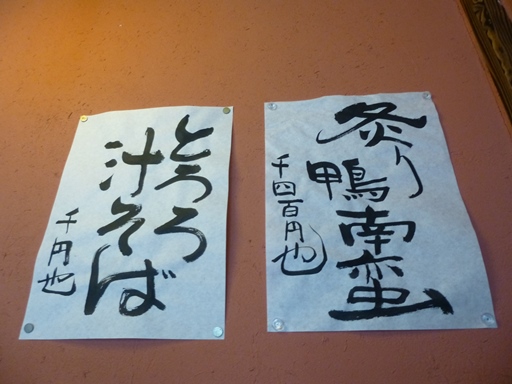 炙り
鴨南蛮
千四百円也
とろろ
汁そば
千円也